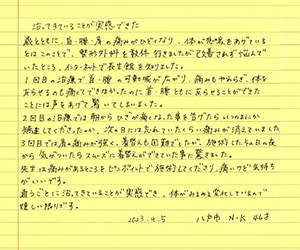 治ってきていることが実感できた
歳とともに、首・腰・肩の痛みがひどくなり、体が悲鳴をあげている
とはこのことで、整形外科を数件行きましたが改善されず悩んで
いたところ、インターネットで長生館を知りました。
1回目の治療で首・腰の可動域が広がり、痛みもやわらぎ、体を
反らせるのも痛くてできなかったのに首・腰ともに反らせることができた
ことには声をあげて驚いてしまいました。
2回目の治療では朝からひざが痛くなった事を告げたらいつのまにか
施術してくださったのか、次の日にはたおれていたくらい痛みが消えていました
3回目では肩の痛みが強く、着替えも困難でしたが、施術したその日の夜
から気がついたらスムーズに着替えができていた事に驚きました。
先生は痛みがあるところをピンポイントで施術してくださり、痛いけど気持ち
がいいです。
通うごとに治ってきていることが実感でき、体がみるみる変化しているので
嬉しい限りです。
2023.4.5 八戸市 N・K 46才